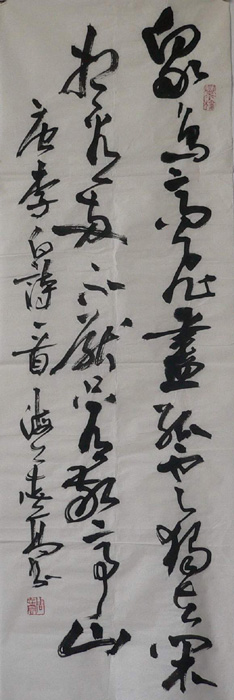 众鸟高飞尽孤云独去闲
相看两不厌只有敬亭山
唐李白诗一首